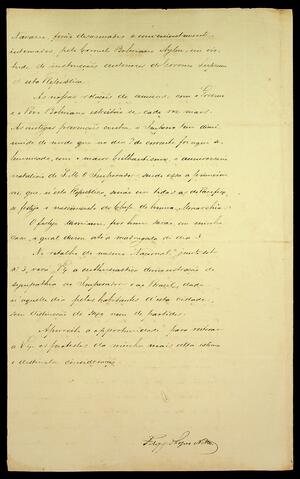 Navarro, forão desarmados e convenientemente
internados pelo Coronel Boliviano Ayllon, em vir-
tude de instrucções anteriores do Governo Supremo
d'esta Republica.
As nossas relações de amisade com o Governo
e o Povo Boliviano estreitão-se cada vez mais.
As antigas prevenções contra o Imperio tem dimi-
nuido de modo que no dia 2 do corrente foi aqui so-
lemnisado, com o maior brilhantismo, o anniversario
natalicio de S. M. O Imperador, sendo essa a primeira vez,
que, n'esta Republica, senão em todas as do Pacifico,
se festeja o nascimento do Chefe de huma Monarchia.
O festejo terminou por hum saráo, em minha
casa, o qual durou até a madrugada do dia 3.
No retalho do mesmo Nacional, junto sob
nº 3, verá V. Ex.ª a enthusiastica demonstração de
sympathia ao Imperador e ao Brazil, dada
n'aquelle dia pelos habitantes d'esta cidade,
sem distincção de sexo nem de partidos.
Aproveito a opportunidade para reiterar
a V. Ex.ª os protestos da minha mais alta estima
e distincta consideração.
Felippe Lopes Netto